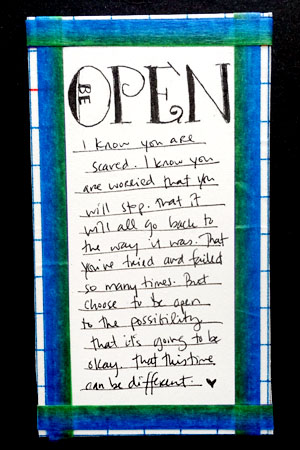 BE OPEN
I know you are
scared. I know you
are worried that you
will stop. That it
will all go back to
the way it was. That
you've tried and failed
so many times. But
choose to be open
to the possibility
that it's going to be
okay. That this time
can be different.